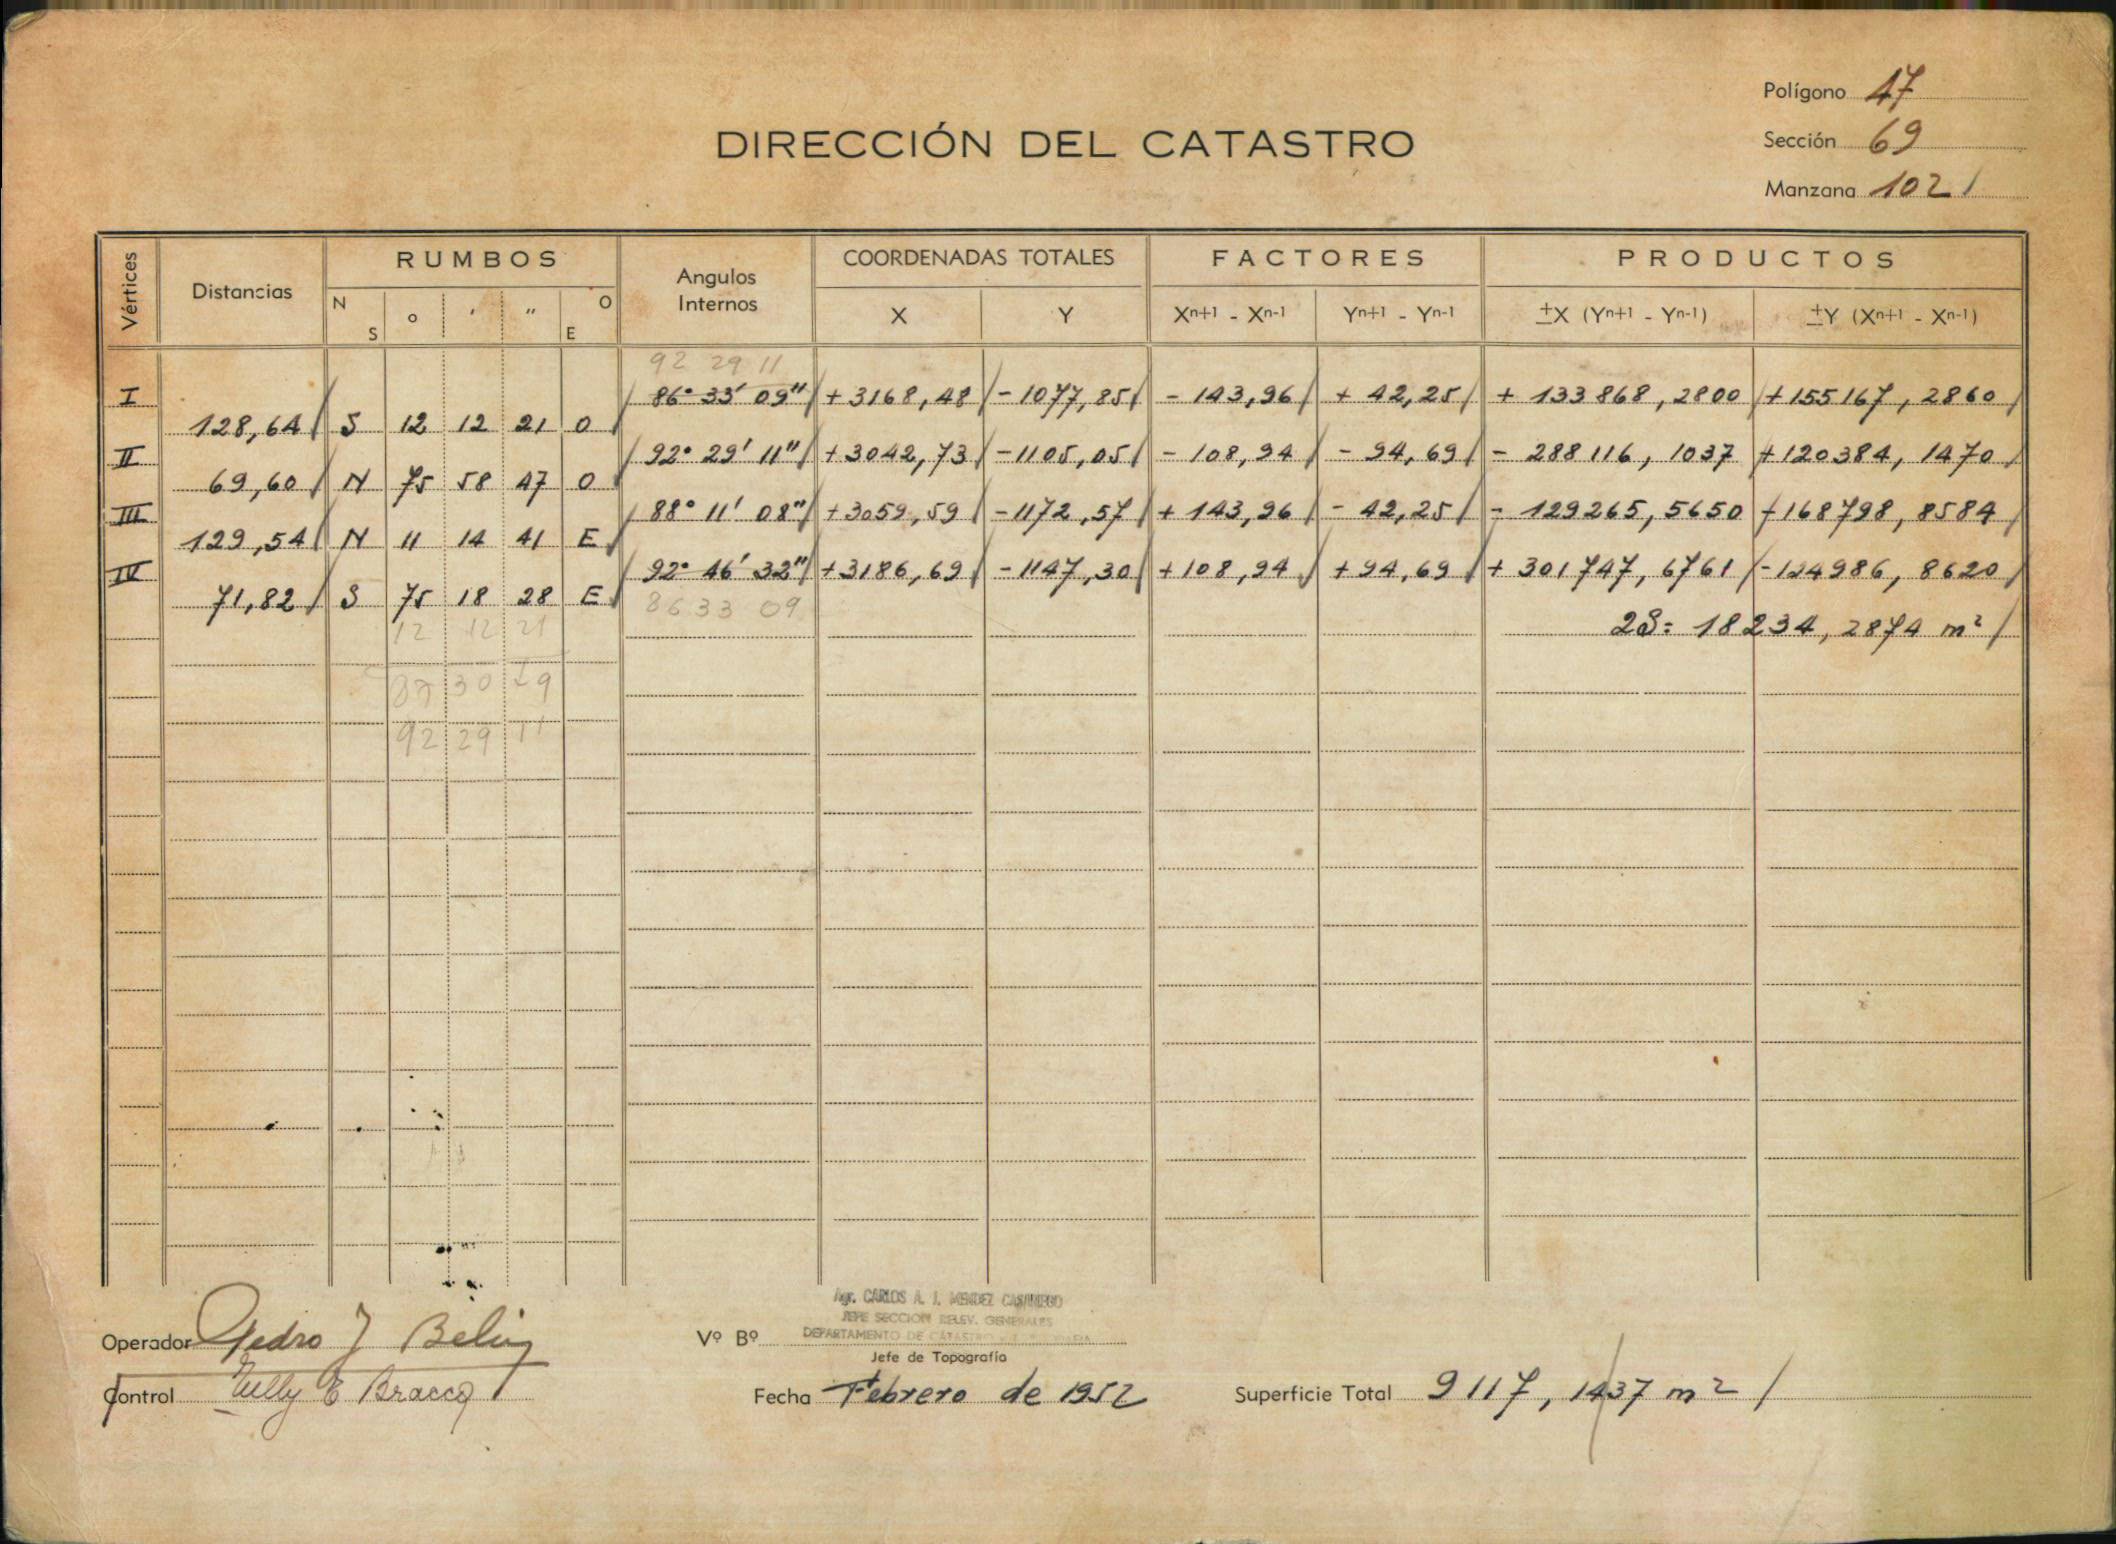 Polígono 47
DIRECCIÓN DEL CATASTRO
Sección 69
Manzana 102 /
Vértices Distancias RUMBOS N S ° ' " O E Angulos Internos COORDENADAS TOTALES X Y FACTORES Xn+1 - Xn-1 Yn+1 - Yn-1 PRODUCTOS ±X (Yn+1 - Yn-1) ±Y (Xn+1 - Xn-1)
92 29 11
I 86° 33' 09" / +3168,48 / -1077,85 / - 143,96 / + 42,25 / + 133868,2800 / +155167,2860 /
128,64 / S 12 12 21 O /
II 92° 29' 11" / +3042,73 / -1105,05 / - 108,94 / - 94,69 / - 288116,1037 / +120384,1470 /
69,60 / N 75 58 47 O /
III 88° 11' 08" / +3059,59 / -1172,57 / + 143,96 / - 42,25 / - 129265,5650 / -168798,8584 /
129,54 / N 11 14 41 E /
IV 92° 46' 32" / +3186,69 / -1147,30 / +108,94 / +94,69 / + 301747,6761 / -124986,8620 /
71,82 / S 75 18 28 E / 86 33 09
12 12 21
2S= 18234,2874 m² /
87 30 49
92 29 11
Agr. CARLOS A. J. MENDEZ CASARIEGO
JEFE SECCION RELEV. GENERALES
DEPARTAMENTO DE CATASTRO
Operador Pedro J Belin
Vº Bº
Jefe de Topografía
Control Bracco
Fecha Febrero de 1952
Superficie Total 9117,1437 m² /